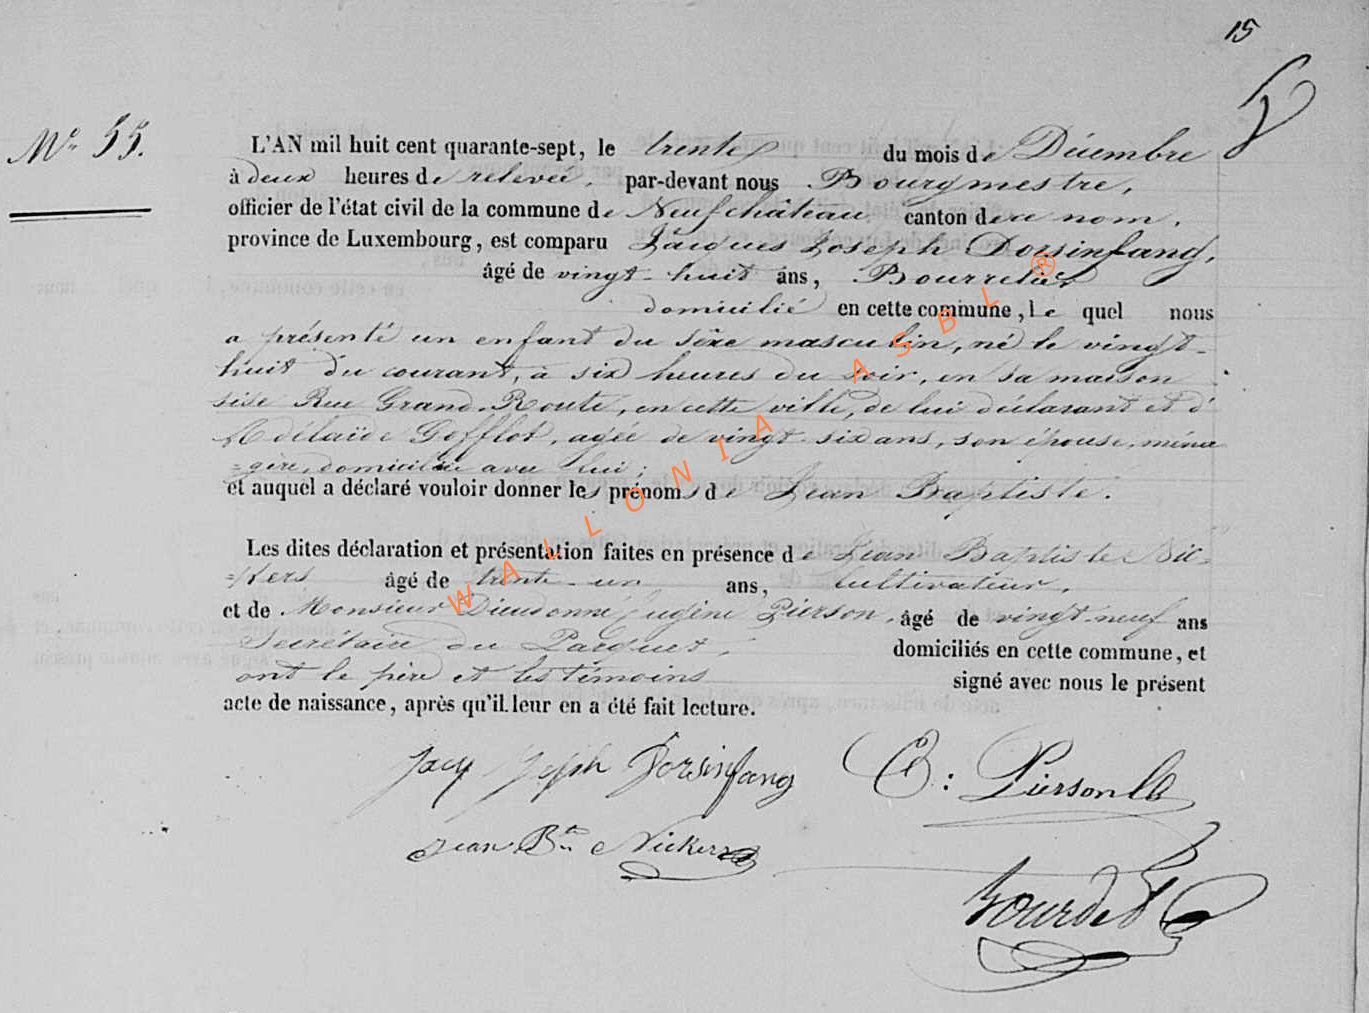 15
N° 55.
L'AN mil huit cent quarante-sept, le trente du mois de Décembre
à deux heures de relevée, par-devant nous Bourgmestre,
officier de l'état civil de la commune de Neufchâteau, canton de ce nom,
province de Luxembourg, est comparu Jacques Joseph Dorsinfang,
âgé de vingt-huit ans, Bourrelier
domicilié en cette commune, le quel nous
a présenté un enfant du sèxe masculin, né le vingt-
huit du courant, à six heures du soir, en sa maison
sise Rue Grand-Route, en cette ville, de lui déclarant et d'
Adélaïde Gofflot, agée de vingt-six ans, son épouse, ména
=gère, domiciliée avec lui;
et auquel a déclaré vouloir donner les prénoms de Jean Baptiste.
Les dites déclaration et présentation faites en présence de Jean Baptiste Nic-
=kers âgé de trente-un ans, cultivateur,
et de Monsieur Dieudonné Eugène Pierson, âgé de vingt-neuf ans
Secrétaire du Parquet, domiciliés en cette commune, et
ont le père et les témoins signé avec nous le présent
acte de naissance, après qu'il leur en a été fait lecture.
Jacq Joseph Dorsinfang E: Pierson
Jean Bte Nickers
Bourdet
WALLONIA ASBL ®